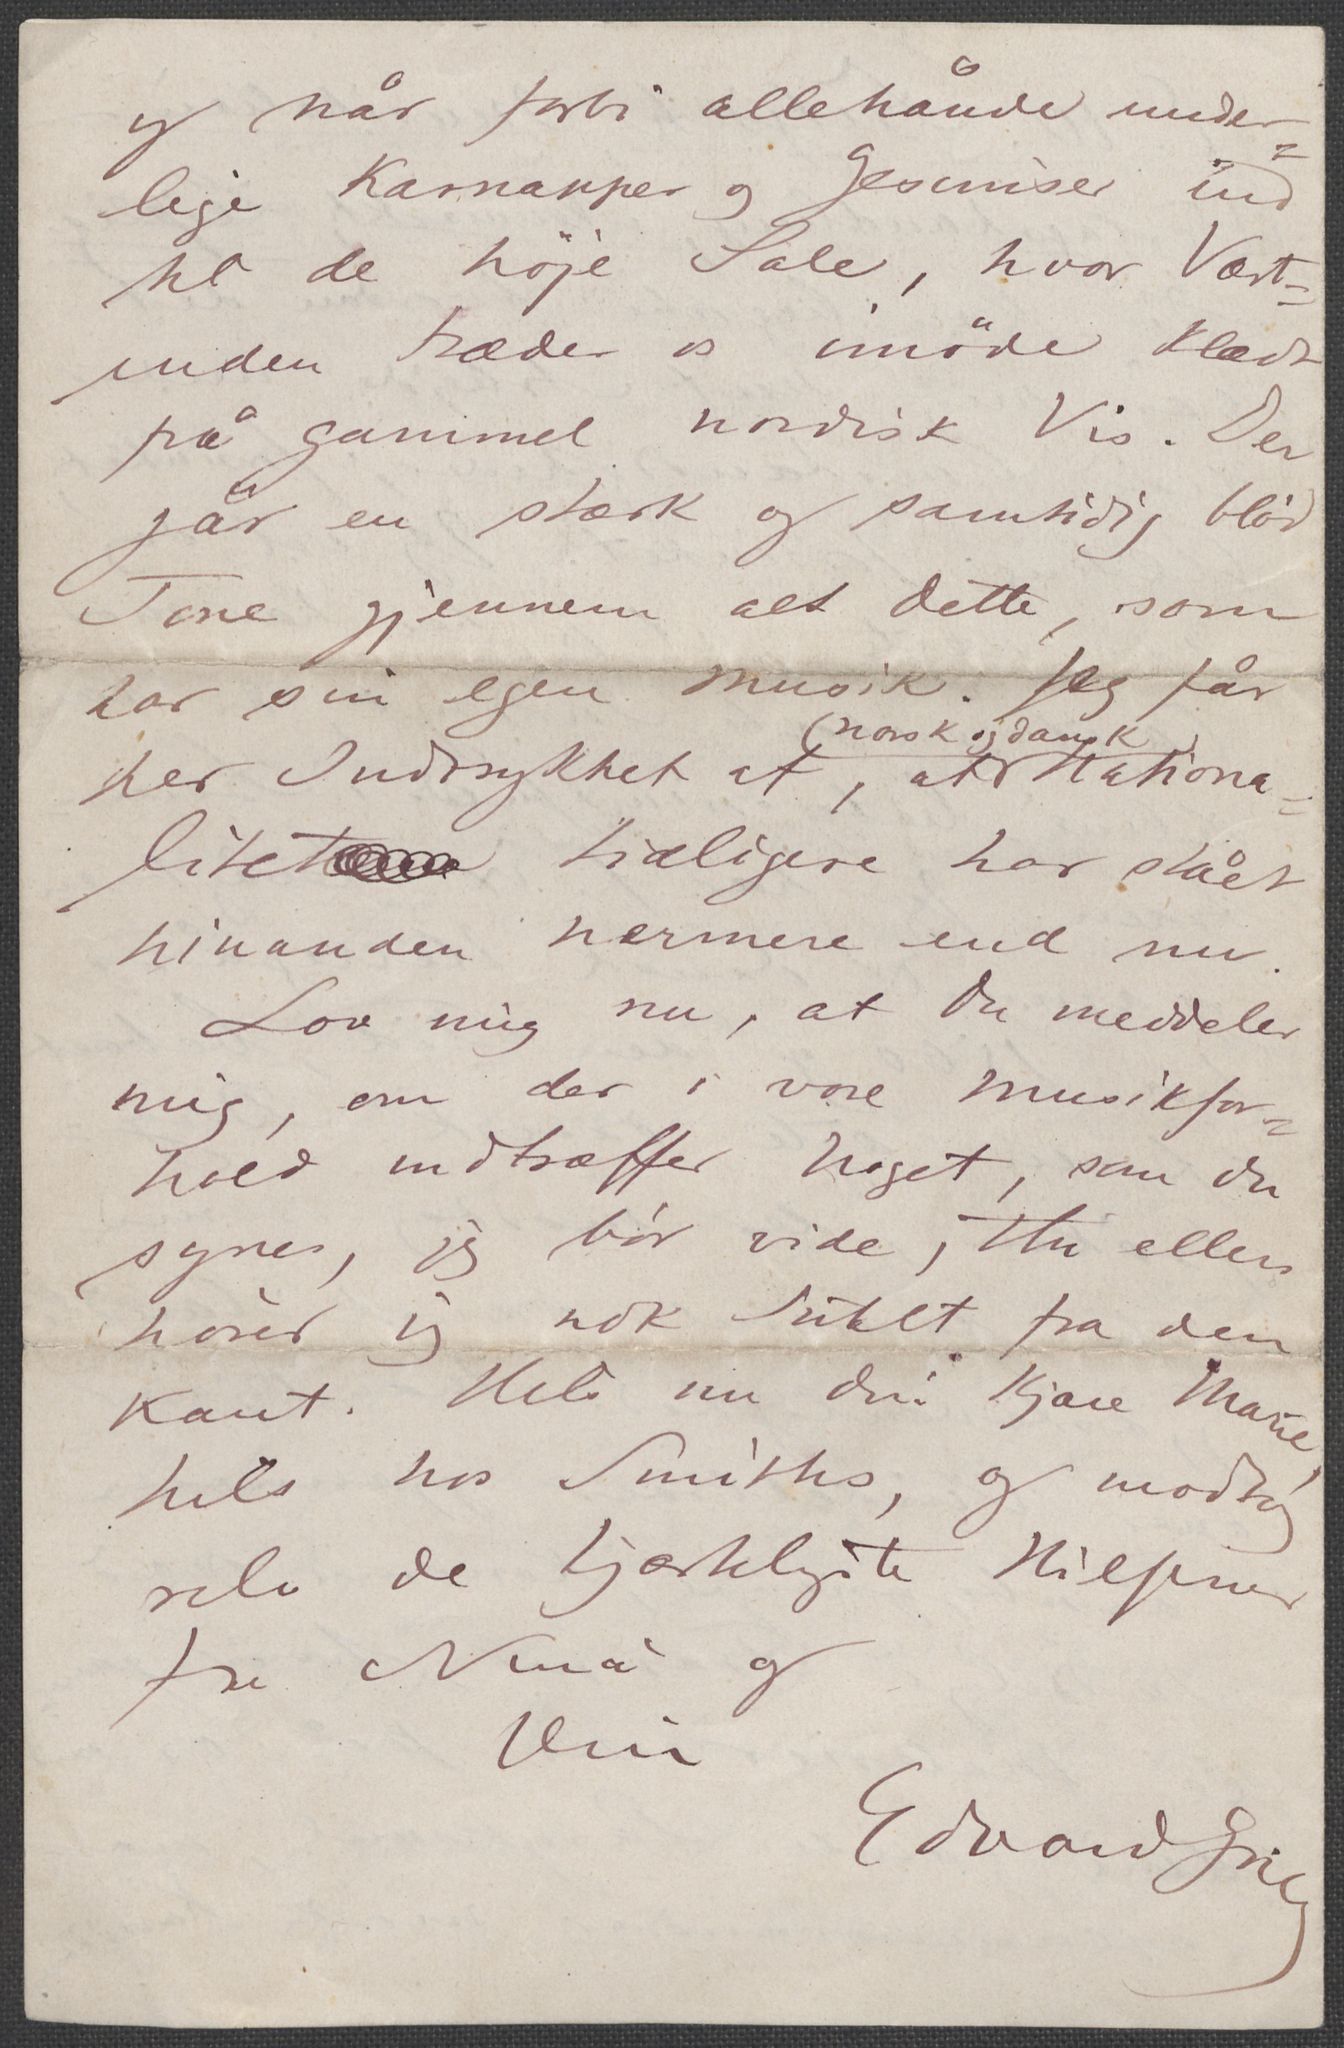 og når forbi allehånde under-
lige Karnapper og Gesimser ind
til de höje Sale, hvor Vært-
inden træder os imöde klædt
på gammel nordisk Vis. Der
går en stærk og samtidig blöd
Tone gjennem alt dette, som
har sin egen Musik. Jeg får
(norsk og dansk)
her Indtrykket af, at Nationa-
litet tidligere har stået
hinanden nærmere end nu.
Lov mig nu, at Du meddeler
mig, om der i vore Musikfor-
hold indtræffer Noget, som du
synes, jeg bör vide, thi ellers
hörer jeg nok Intet fra den
Kant. Hils nu din kjære Marie,
hils hos Smiths, og modtag
selv de hjærteligste Hilsener
fra Nina og
Din
Edvard Grieg